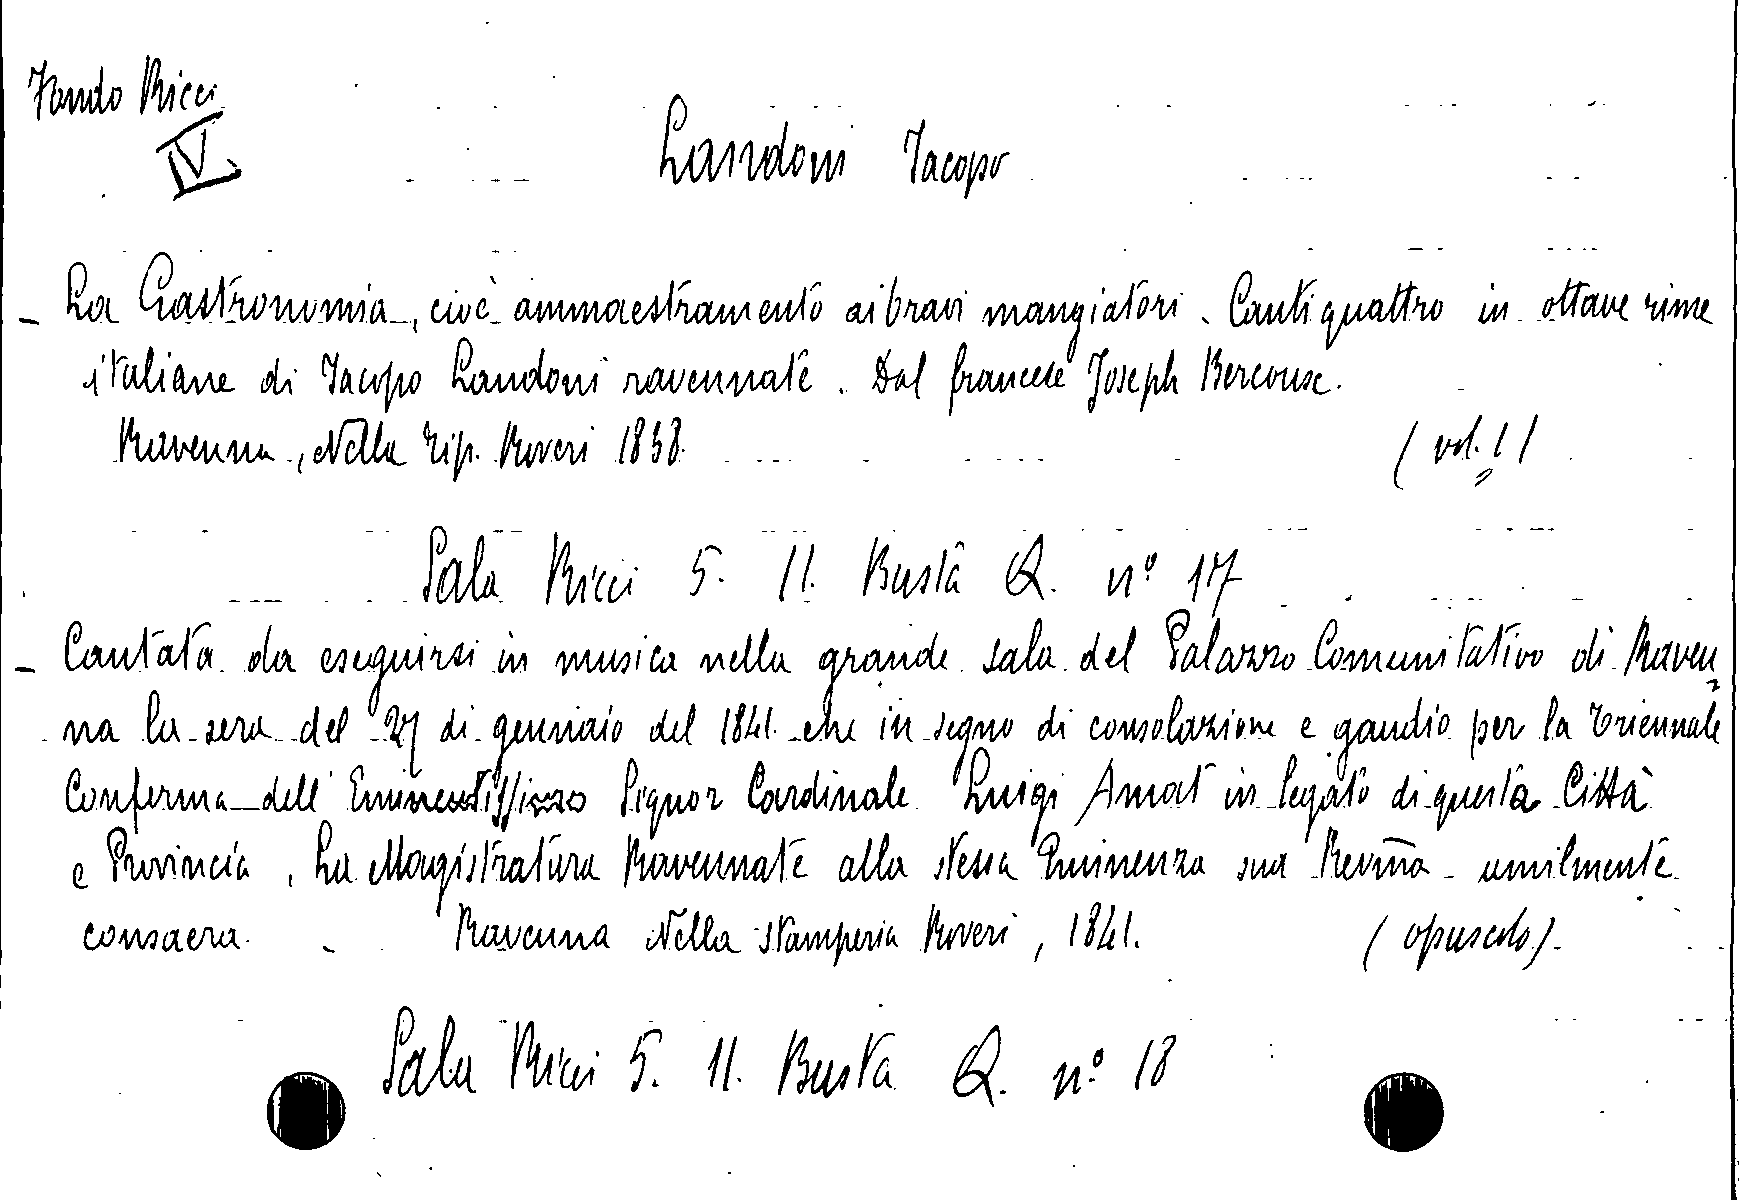 Fondo Ricci
IV
Landoni Jacopo
- La Gastronomia, cioè ammaestramento ai bravi mangiatori. Canti quattro in ottave rime
italiane di Jacopo Landoni ravennate. Dal francese Joseph Bercouse.
Ravenna, Nella Tip. Roveri 1838. (vol.)
Sala Ricci 5. 11. Busta Q. n° 17
- Cantata da eseguirsi in musica nella grande sala del Palazzo Comunitativo di Raven=
na la sera del 27 di gennaio del 1841. che in segno di consolazione e gaudio per la triennale
Conferma dell'Eminentissimo Signor Cardinale Luigi Amat in legato di questa Città
e Provincia, La Magistratura Ravennate alla stessa Eminenza sua Revm̃a umilmente
consacra. - Ravenna Nella stamperia Roveri, 1841. (opuscolo).
Sala Ricci 5. 11. Busta Q. n° 18